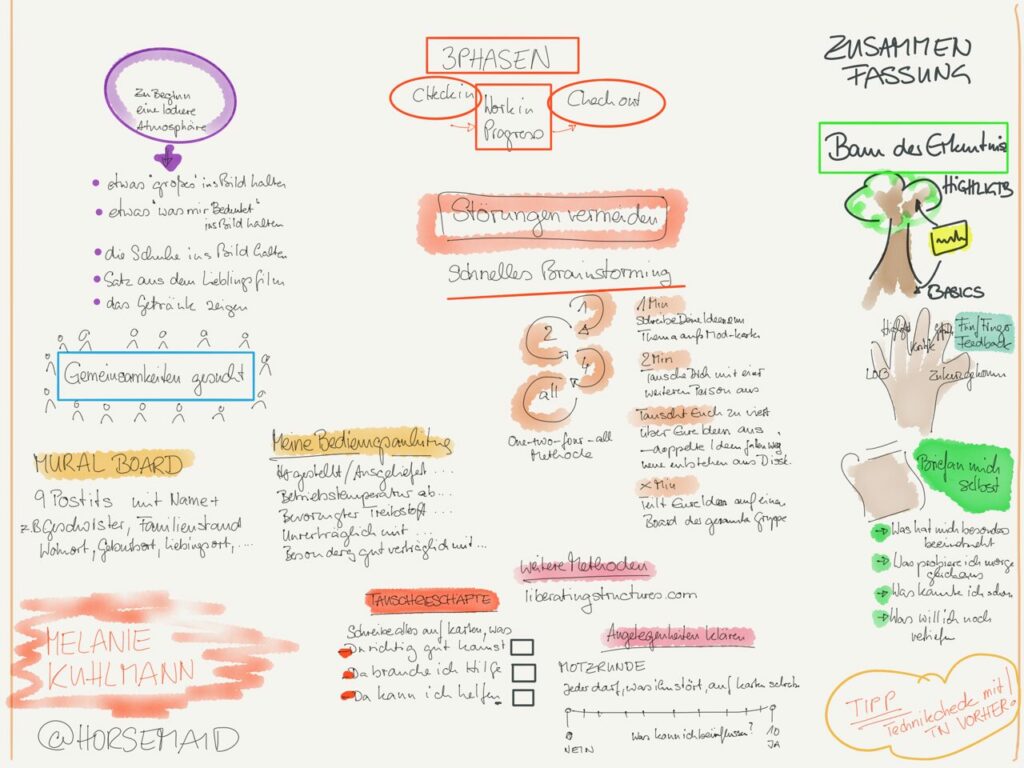 Zu Beginn
eine lockere
Atmosphäre
etwas "großes" ins Bild halten
etwas "was mir Bedeutet"
ins Bild halten
die Schuhe ins Bild halten
Satz aus dem Lieblingsfilm
das Getränke zeigen
Gemeinsamkeiten gesucht
MURAL BOARD
9 Postits mit Name+
z.B Geschwister, Familienstand
Wohnort, Geburtsort, Lieblingsort, ...
MELANIE
KUHLMANN
@HORSEMAID
3 PHASEN
Check in
Work in
Progress
Check out
Störungen vermeiden
schnelles Brainstorming
1
2
4
all
One-two-four-all
Methode
1 Min
Schreibe Deine Ideen zum
Thema auf Mod-karten
2 Min
Tausche Dich mit einer
weiteren Person aus
Tauscht Euch zu viert
über Eure Ideen aus
doppelte Ideen fallen weg
neue entstehen aus Disk.
x Min
Teilt Eure Ideen auf einem
Board der gesamte Gruppe
Meine Bedienungsanleitung
Hergestellt / Ausgeliefert ...
Betriebstemperatur ab ...
Bevorzugter Treibstoff ...
Unverträglich mit ...
Besonders gut verträglich mit ...
Weitere Methoden
liberatingstructures.com
TAUSCHGESCHÄFTE
Schreibe alles auf Karten, was
Du richtig gut kannst
Da brauche ich Hilfe
Da kann ich helfen
Angelegenheiten klären
MOTZRUNDE
Jeder darf, was ihn stört, auf Karten schreiben
0
NEIN
Was kann ich beeinflussen?
10
JA
ZUSAMMEN
FASSUNG
Baum der Erkentnis
HIGHLIGHTS
BASICS
Fünf Finger
Feedback
Highlight
Kritik
LOB
Zu kurz gekommen
Brief an mich
selbst
Was hat mich besonders
beeindruckt
Was probiere ich morgen
gleich aus
Was kannte ich schon
Was will ich noch
vertiefen
TIPP
Technikcheck mit
TN VORHER!